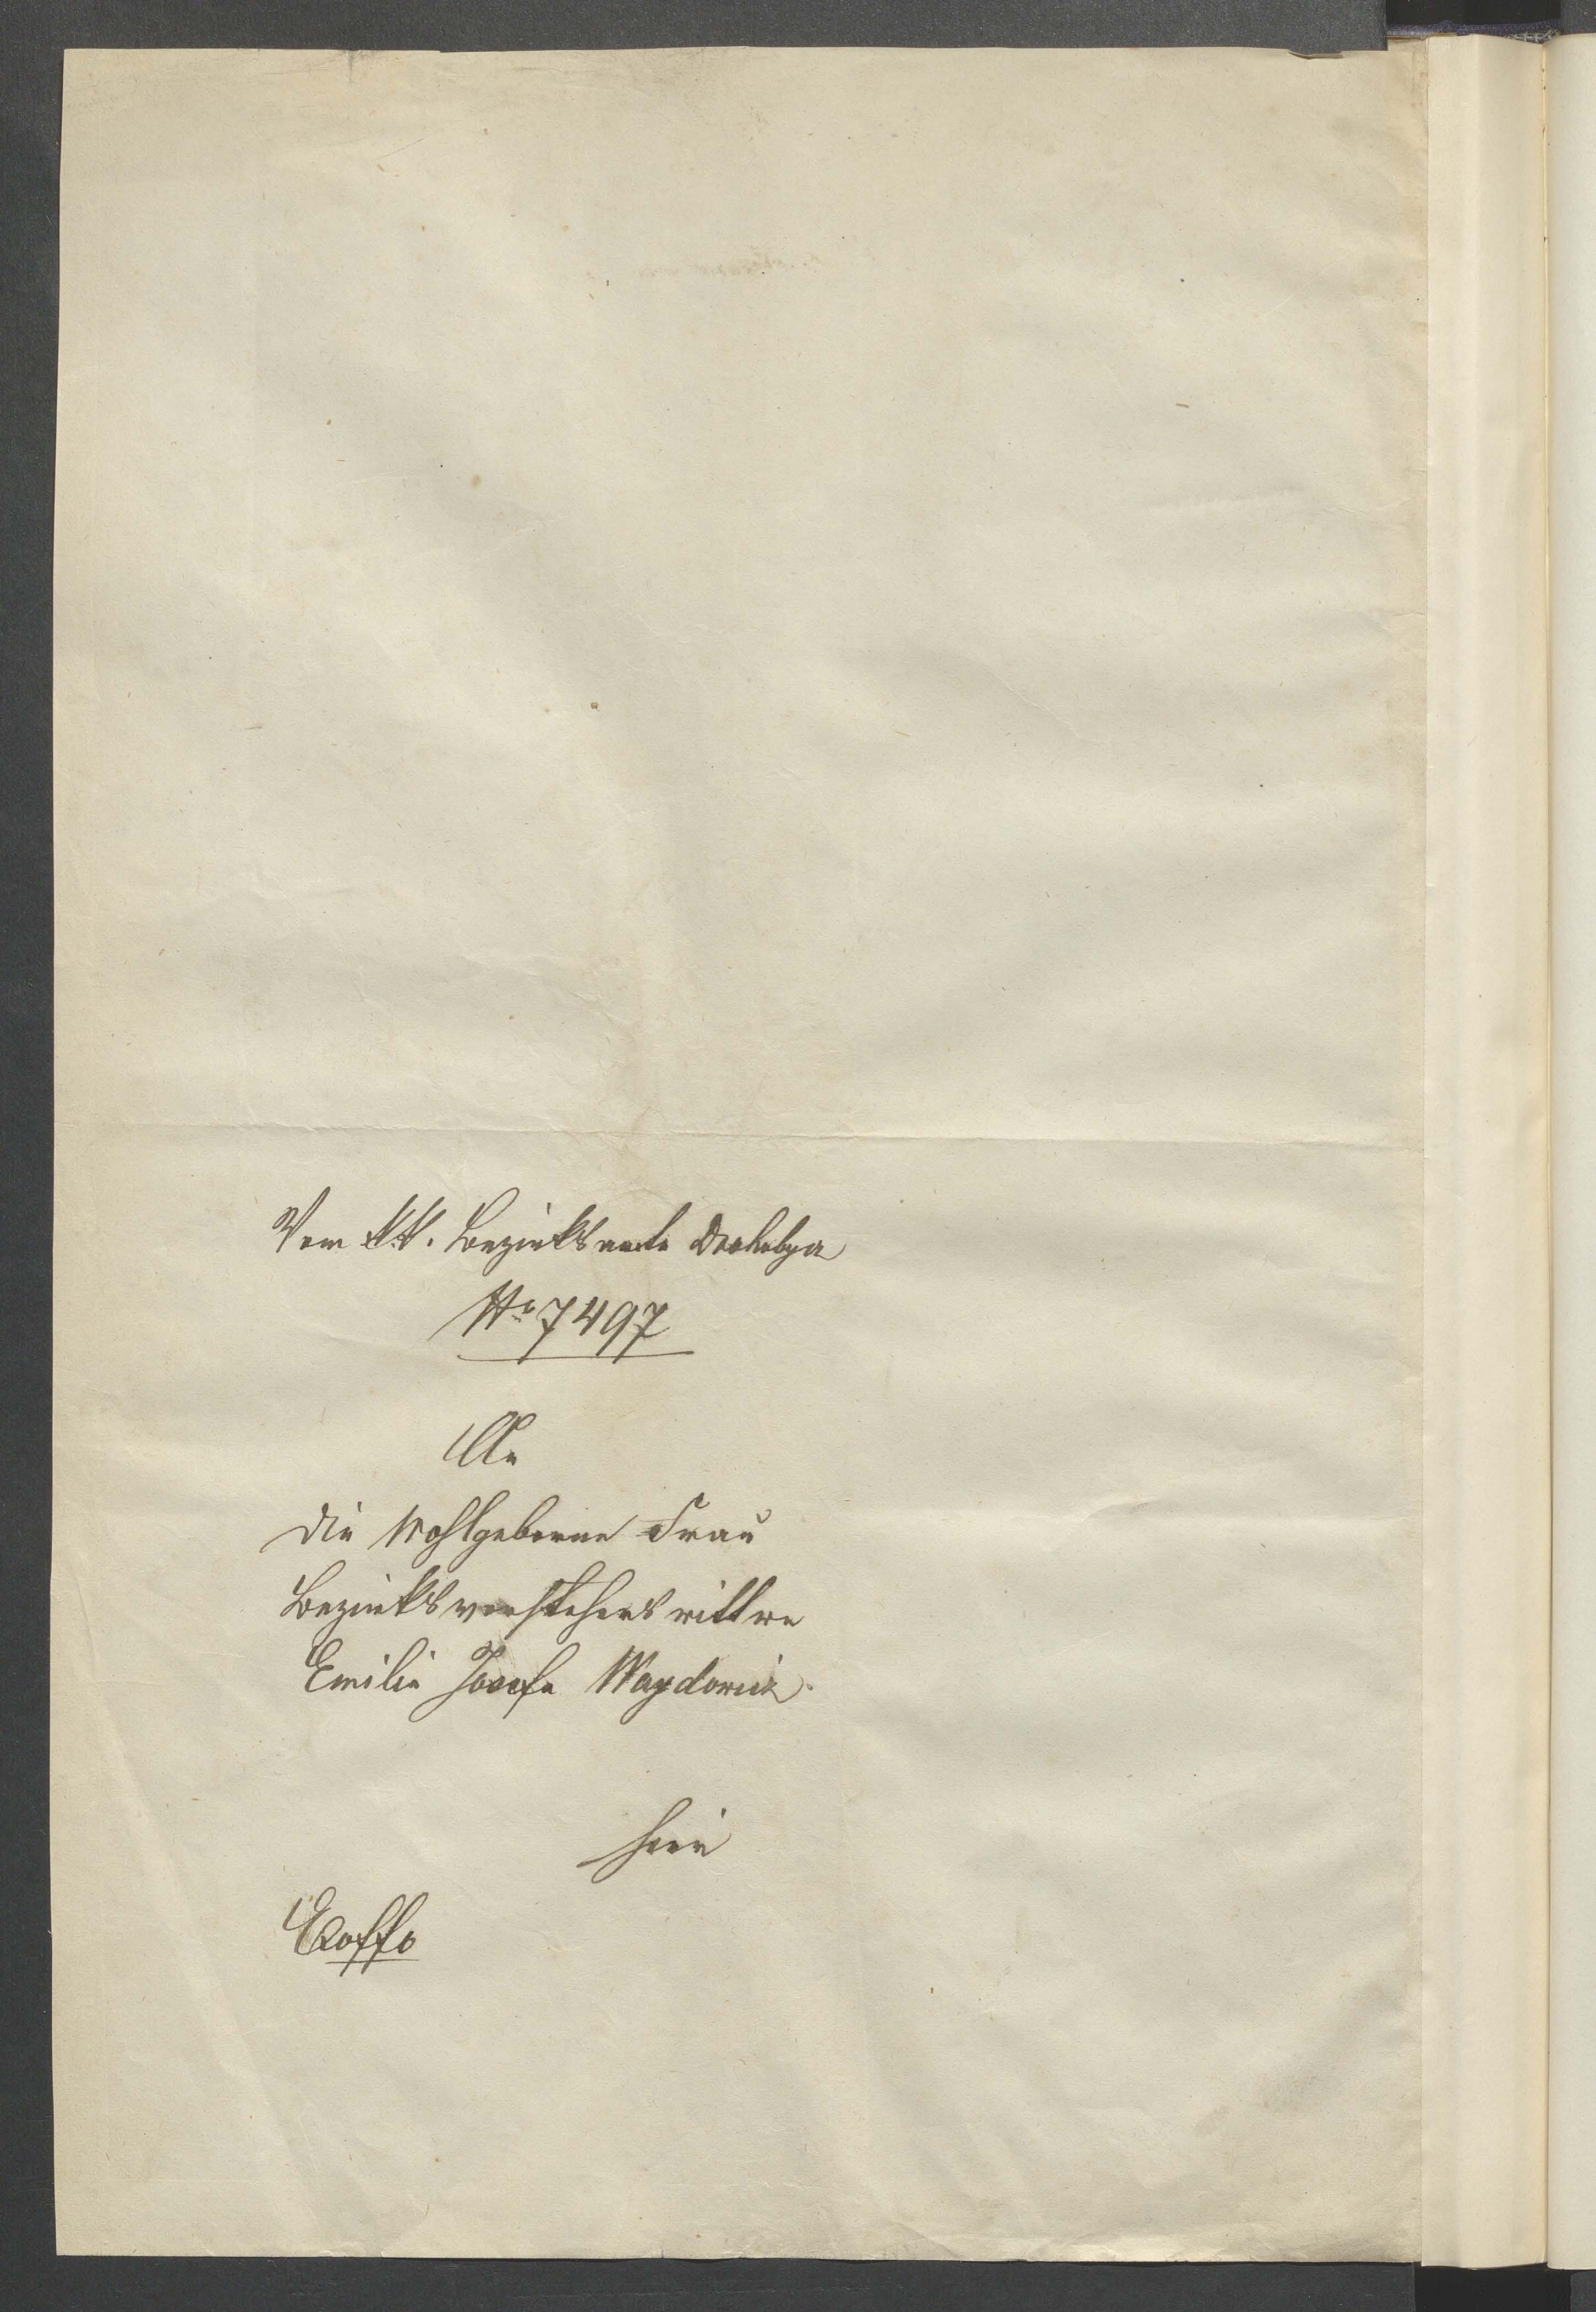 Vom k.k. Bezirksamte Drohobycz
No 7497
An
die Wohlgeborne Frau
Bezirksvorstehers wittwe
Emilie Josefa Waydowicz
hier
Exoffo